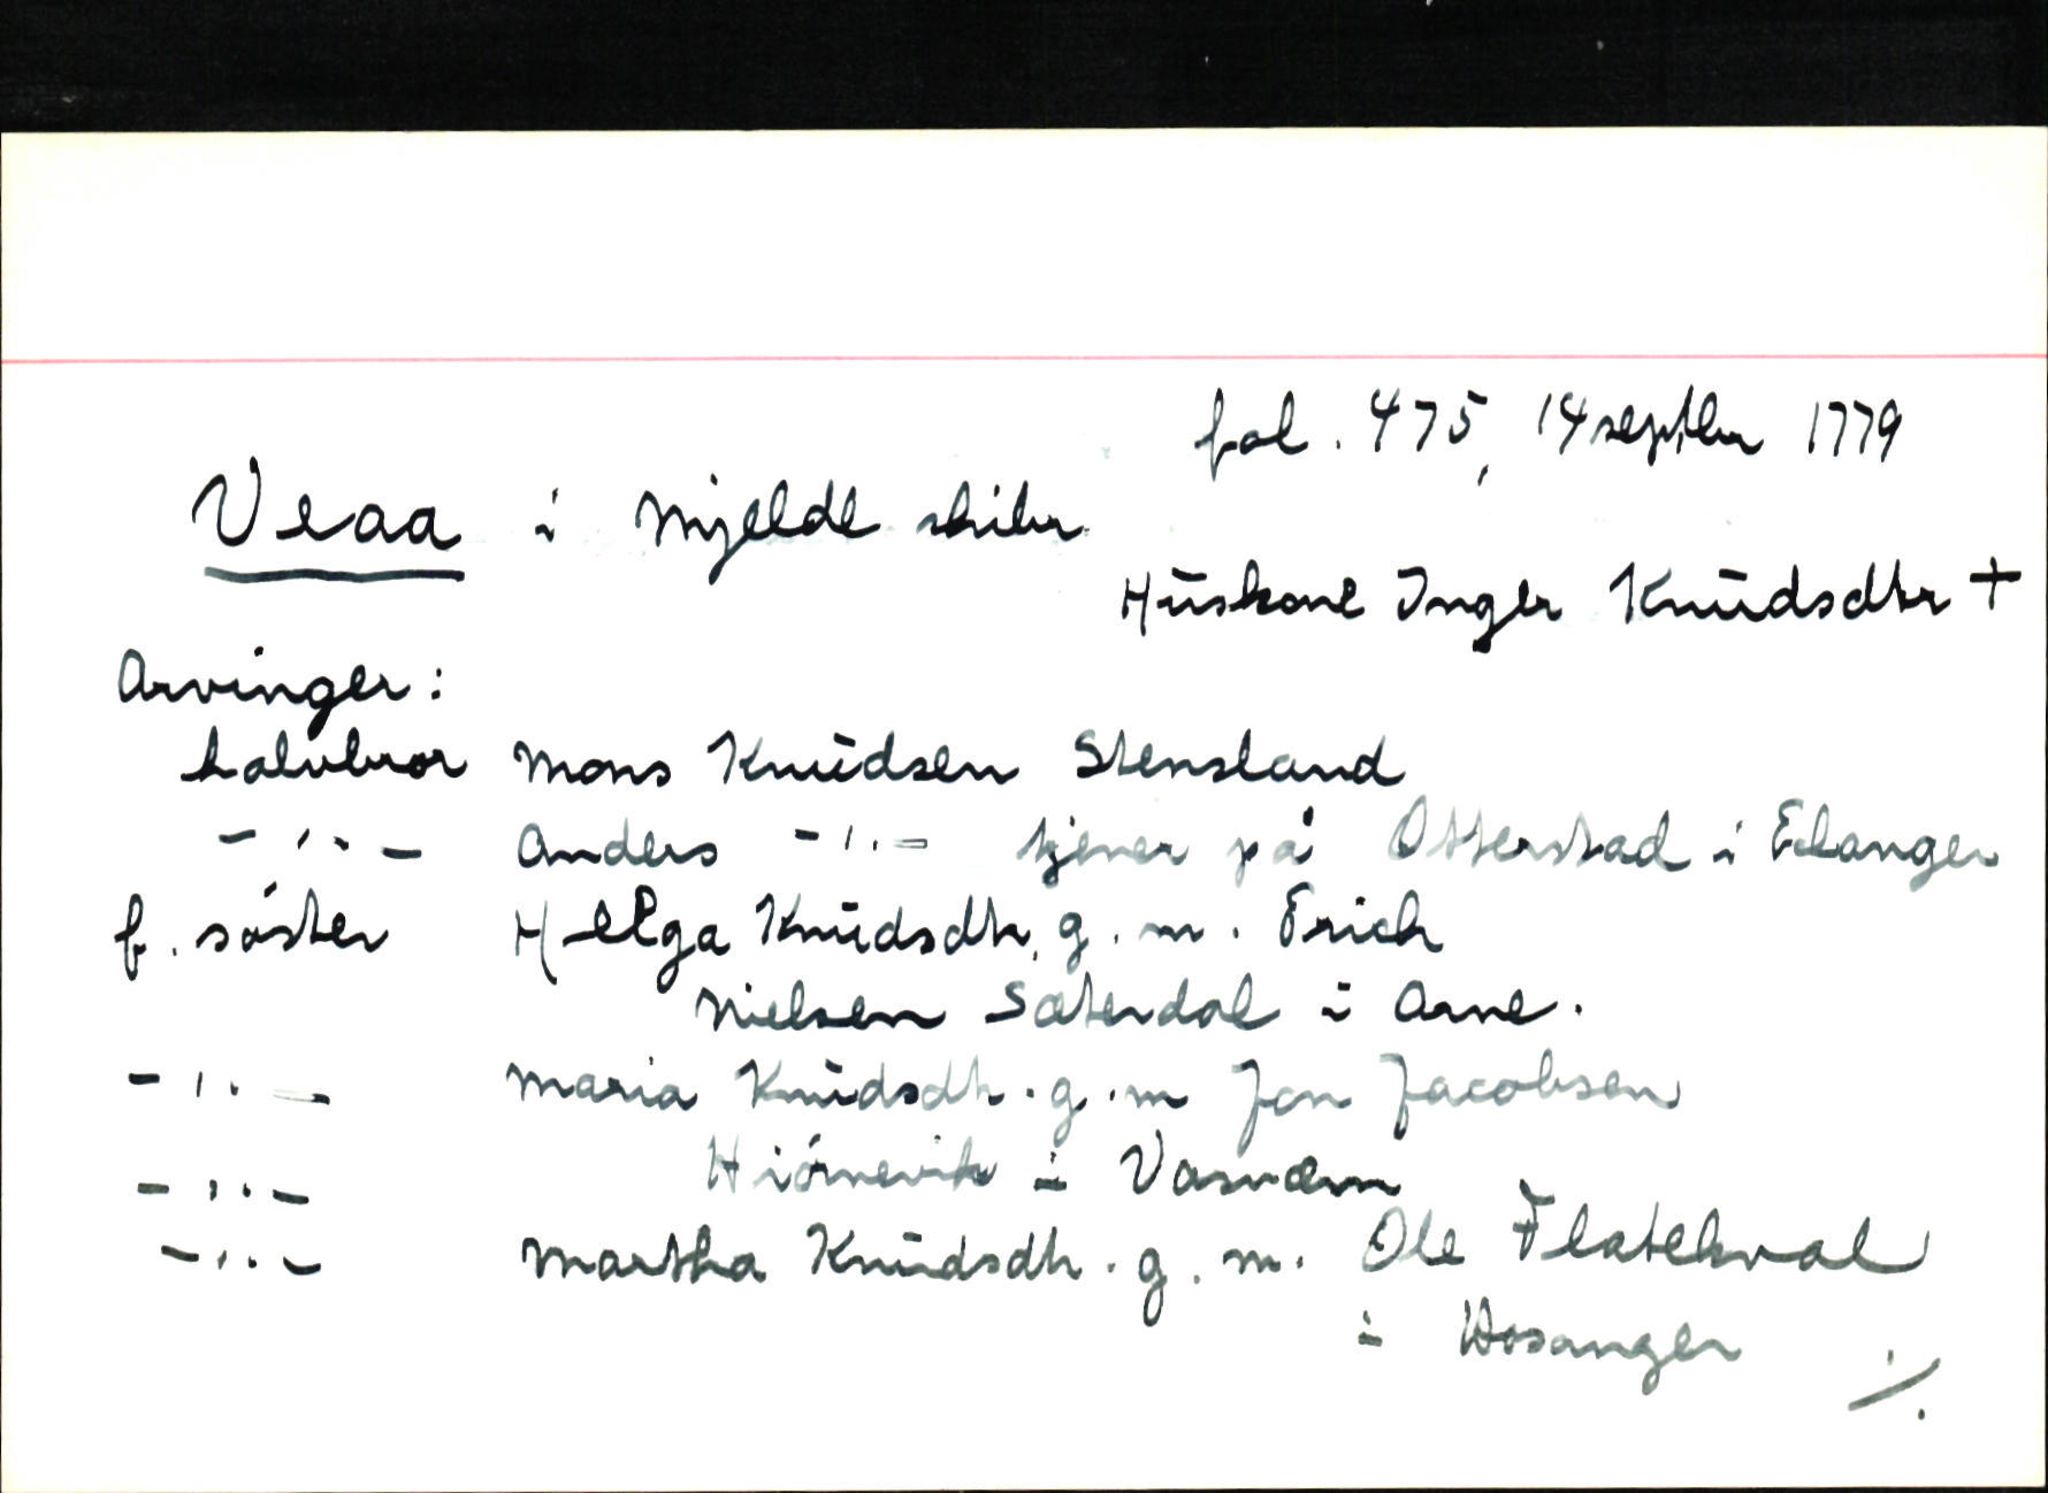 fol. 475, 14 septbr 1779
Veaa i Mjelde skibr
Huskone Inger Knudsdtr +
Arvinger:
halvbror Mons Knudsen Stensland
-"- Anders -"- tjener på Otterstad i Echanger
f. søster Helga Knudsdtr. g. m. Erich
Nielsen Sæterdal i Arne.
-"- Maria Knudsdtr. g. m Jon Jacobsen
-"- Hiórnevik i
-"- Martha Knudsdtr. g. m. Ole Flatekval
i Hosanger ./.